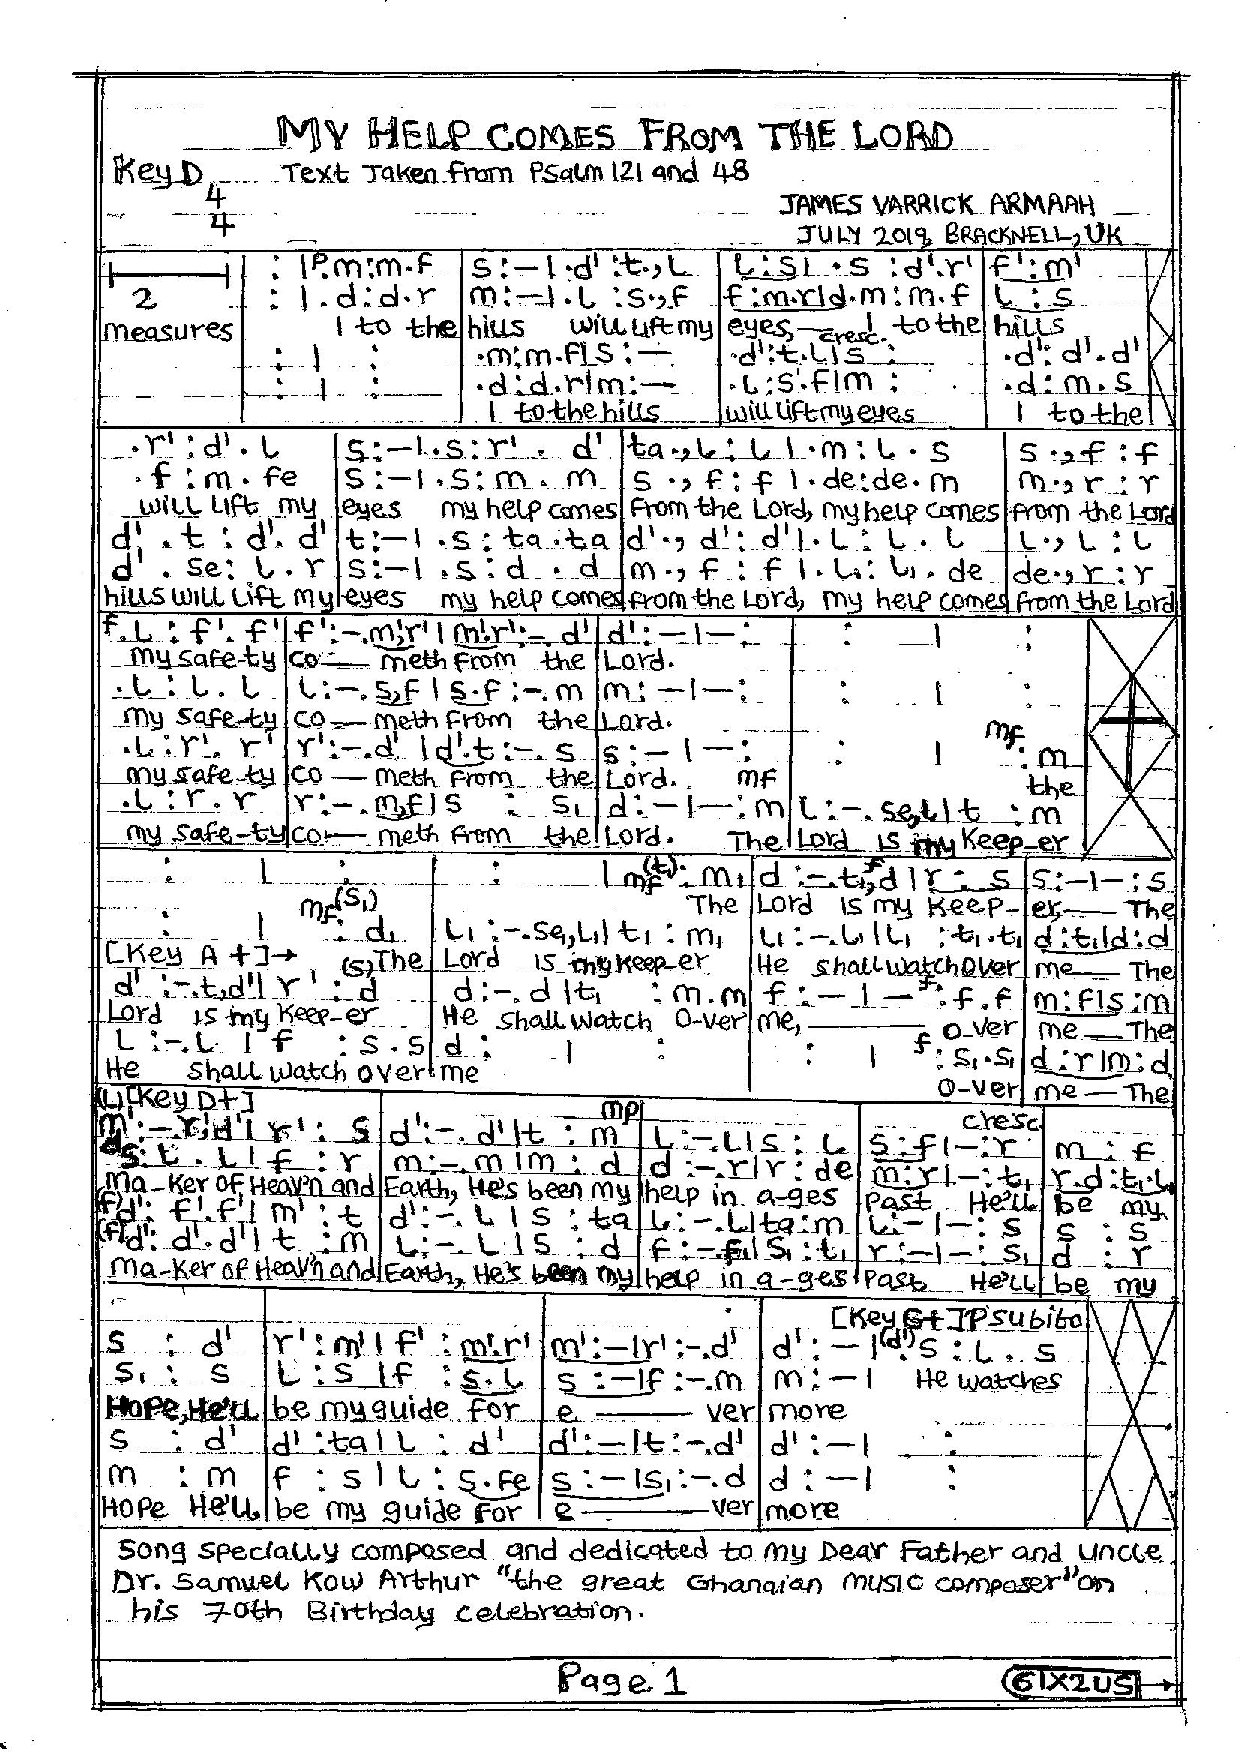 MY HELP COMES FROM THE LORD
Key D
Text Taken from Psalm 121 and 48
4
4
JAMES VARRICK ARMAAH
JULY 2019, BRACKNELL, UK
: |P.m:m.f | s:-|.d':t.,l | l:s|.s:d'.r' | f':m'
2 : |.d:d.r | m:-|.l:s.,f | f:m.r|d.m:m.f | l:s
measures I to the hills will lift my eyes,— I to the hills
cresc.
: | : .m:m.f|s:- .d':t.l|s: .d':d'.d'
: | : .d:d.r|m:- .l:s.f|m: .d:m.s
I to the hills will lift my eyes I to the
.r':d'.l | s:-|.s:r'.d' | ta.,l:l|.m:l.s | s.,f:f
.f:m.fe | s:-|.s:m.m | s.,f:f|.de:de.m | m.,r:r
will lift my eyes my help comes from the Lord, my help comes from the Lord
d'.t:d'.d' | t:-|.s:ta.ta | d'.,d':d'|.l:l.l | l.,l:l
d'.se:l.r | s:-|.s:d.d | m.,f:f|.l₁:l₁.de | de.,r:r
hills will lift my eyes my help comes from the Lord, my help comes from the Lord
f.l:f'.f' | f':-.m'r'|m'.r':-.d' | d':-|-: | : | :
my safe-ty co— meth from the Lord.
.l:l.l | l:-.s,f|s.f:-.m | m:-|-: | : | :
my safe-ty co— meth from the Lord.
mf
.l:r'.r' | r':-.d'|d'.t:-.s | s:-|-: | : | :m
my safe-ty co— meth from the Lord. mf the
.l:r.r | r:-.m,f|s:s₁ | d:-|-:m | l:-.se,l|t:m
my safe-ty co— meth from the Lord. The Lord is my Keep-er
: | : | : | mf(t₁):m₁ | d:-.t₁,d|r:s | s:-|-:s
The Lord is my Keep-er— The
: | mf(s₁):d₁ | l₁:-.se₁,l₁|t₁:m₁ | l₁:-.l₁|l₁:t₁.t₁ | d:t₁|d:d
[Key A t]→ (s) The Lord is my Keep-er He shall watch over me— The
d':-.t,d'|r':d | d:-.d|t₁:m.m | f:-|-f:f.f | m:f|s:m
Lord is my Keep-er He shall watch o-ver me,— o-ver me—The
l:-.l|f:s.s | d: | : | : | f:s₁.s₁ | d:r|m:d
He shall watch over me o-ver me—The
(l)[Key D t]
mp cresc
m':-.r',d'|r':s | d':-.d'|t:m | l:-.l|s:l | s:f|-:r | m:f
s:l.l|f:r | m:-.m|m:d | d:-.r|r:de | m:r|-:t₁ | r.d:t₁.l₁
Ma-Ker of Heav'n and Earth, He's been my help in a-ges Past He'll be my
(f)d':f'.f'|m':t | d':-.l|s:ta | l:-.l|ta:m | l:-|-:s | s:s
(f)d':d'.d'|t:m | l:-.l|s:d | f:-.f₁|s₁:t₁ | r:-|-:s₁ | d:r
Ma-Ker of Heav'n and Earth, He's been my help in a-ges Past He'll be my
[Key G t] P subito
s:d' | r':m'|f':m'.r' | m':-|r':-.d' | d':-|(d')s:l.s
s₁:s | l:s|f:s.l | s:-|f:-.m | m:-| He watches
Hope, He'll be my guide for e—ver more
s:d' | d':ta|l:d' | d':-|t:-.d' | d':-| :
m:m | f:s|l:s.fe | s:-|s₁:-.d | d:-| :
Hope He'll be my guide for e—ver more
Song specially composed and dedicated to my Dear Father and uncle
Dr. Samuel Kow Arthur "the great Ghanaian music composer" on
his 70th Birthday celebration.
Page 1
61X2US